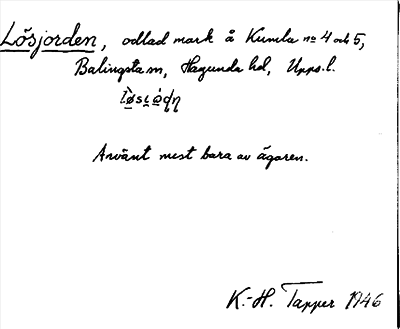 Lösjorden, odlad mark å Kumla no 4 och 5,
Balingsta sn, Hagunda hd, Upps. l.
Använt mest bara av ägaren.
K.-H. Tapper 1946